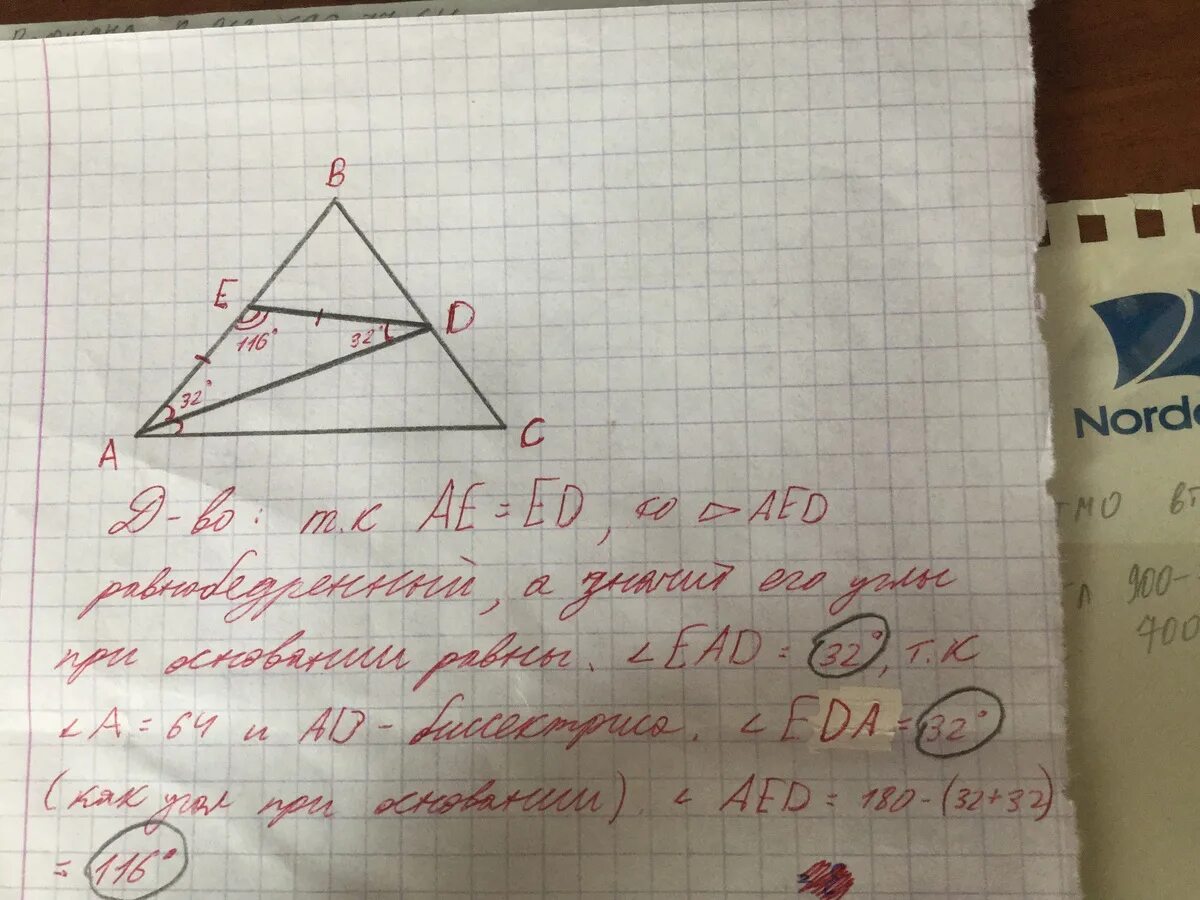 B
E
D
116°
32°
32°
A
C
Д-во: т.к AE = ED, то ▷ AED
равнобедренный, а значит его углы
при основании равны. ∠EAD = 32°, т.к
∠A = 64 и AD - биссектриса. ∠EDA = 32°
(как угол при основании) ∠ AED = 180-(32+32)
= 116°
Norde
900-
700